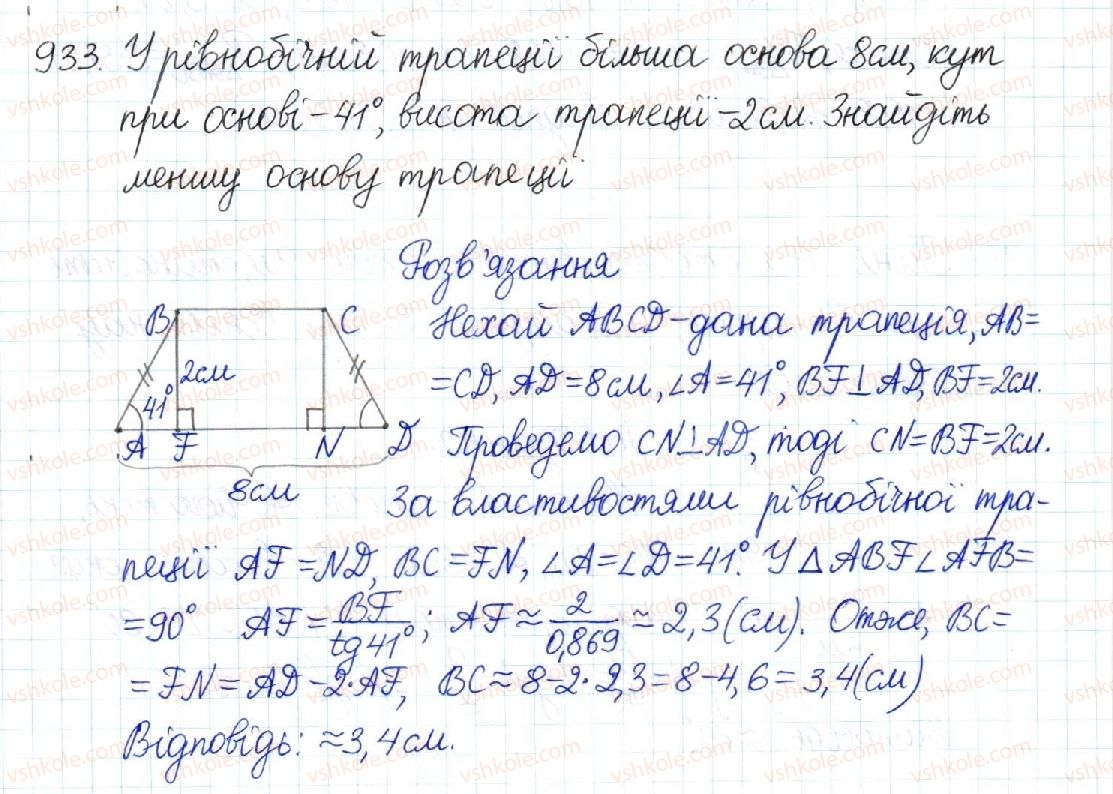 933. У рівнобічній трапеції більша основа 8см, кут
при основі – 41°, висота трапеції – 2см. Знайдіть
меншу основу трапеції
Розв'язання
B C
2см
41°
A F N D
8см
Нехай ABCD – дана трапеція, AB=
=CD, AD=8см, ∠A=41°, BF⊥AD, BF=2см.
Проведемо CN⊥AD, тоді CN=BF=2см.
За властивостями рівнобічної тра-
пеції AF=ND, BC=FN, ∠A=∠D=41°. У △ABF ∠AFB=
=90° AF=BF/tg41°; AF≈2/0,869≈2,3(см). Отже, BC=
=FN=AD-2·AF, BC≈8-2·2,3=8-4,6=3,4(см)
Відповідь: ≈3,4см.
vshkole.com